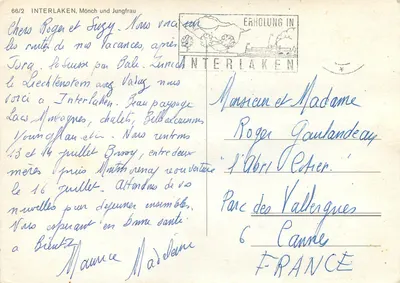 66/2 INTERLAKEN, Mönch und Jungfrau
Chers Roger et Suzy. Nous voici sur
les routes de nos vacances, après
Jura, Lausanne par Zurich
le Liechtenstein avec Vaduz nous
voici à Interlaken. Beau paysage
Lacs Montagnes, chalets,
Nous rentrons
13 et 14 juillet entre deux
mères après
le 16 juillet. Attendons de vos
nouvelles pour déjeuner ensemble.
Vous espérant en bonne santé
à Bientôt
Maurice Madeleine
ERHOLUNG IN
INTERLAKEN
Monsieur et Madame
Roger
"l'Abri Cotier"
Parc des Vallergues
6 Cannes
FRANCE